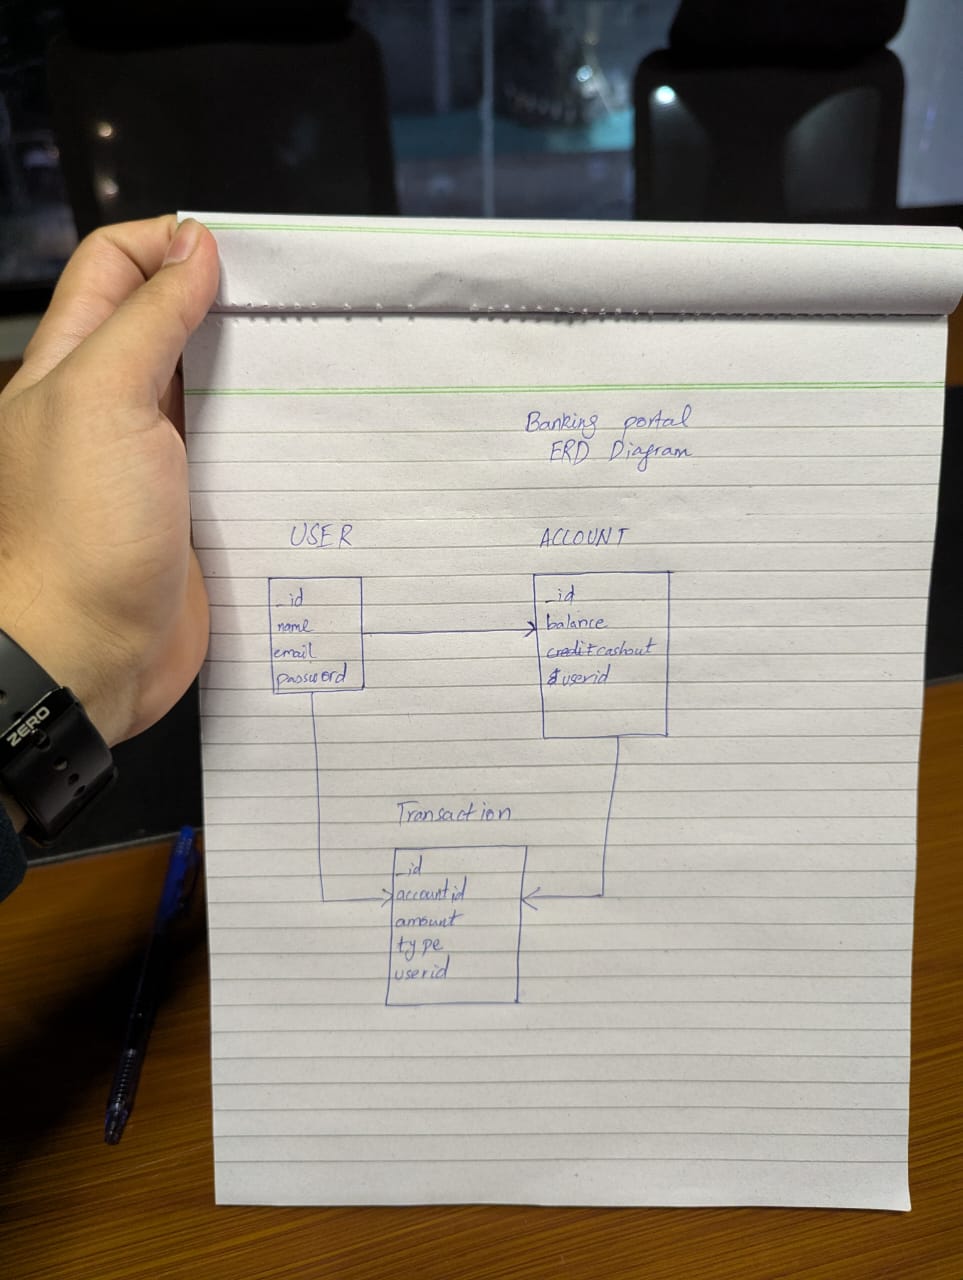 Banking portal
ERD Diagram
USER
_id
name
email
password
ACCOUNT
_id
balance
credit cashout
userid
Transaction
_id
accountid
amount
type
userid
ZERO